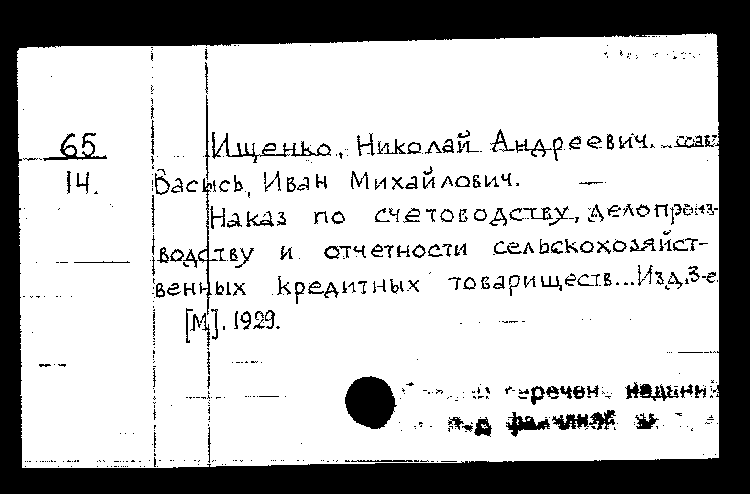 65
14.
Ищенко, Николай Андреевич.
Васысь, Иван Михайлович.
Наказ по счетоводству, делопроиз-
водству и отчетности сельскохозяйст-
венных кредитных товариществ... Изд. 3-е
[М]. 1929.
перечень изданий
под фамилией